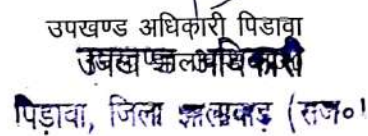 उपखण्ड अधिकारी पिडावा
उपखण्ड अधिकारी
पिड़ावा, जिला झालावाड़ (राज०)